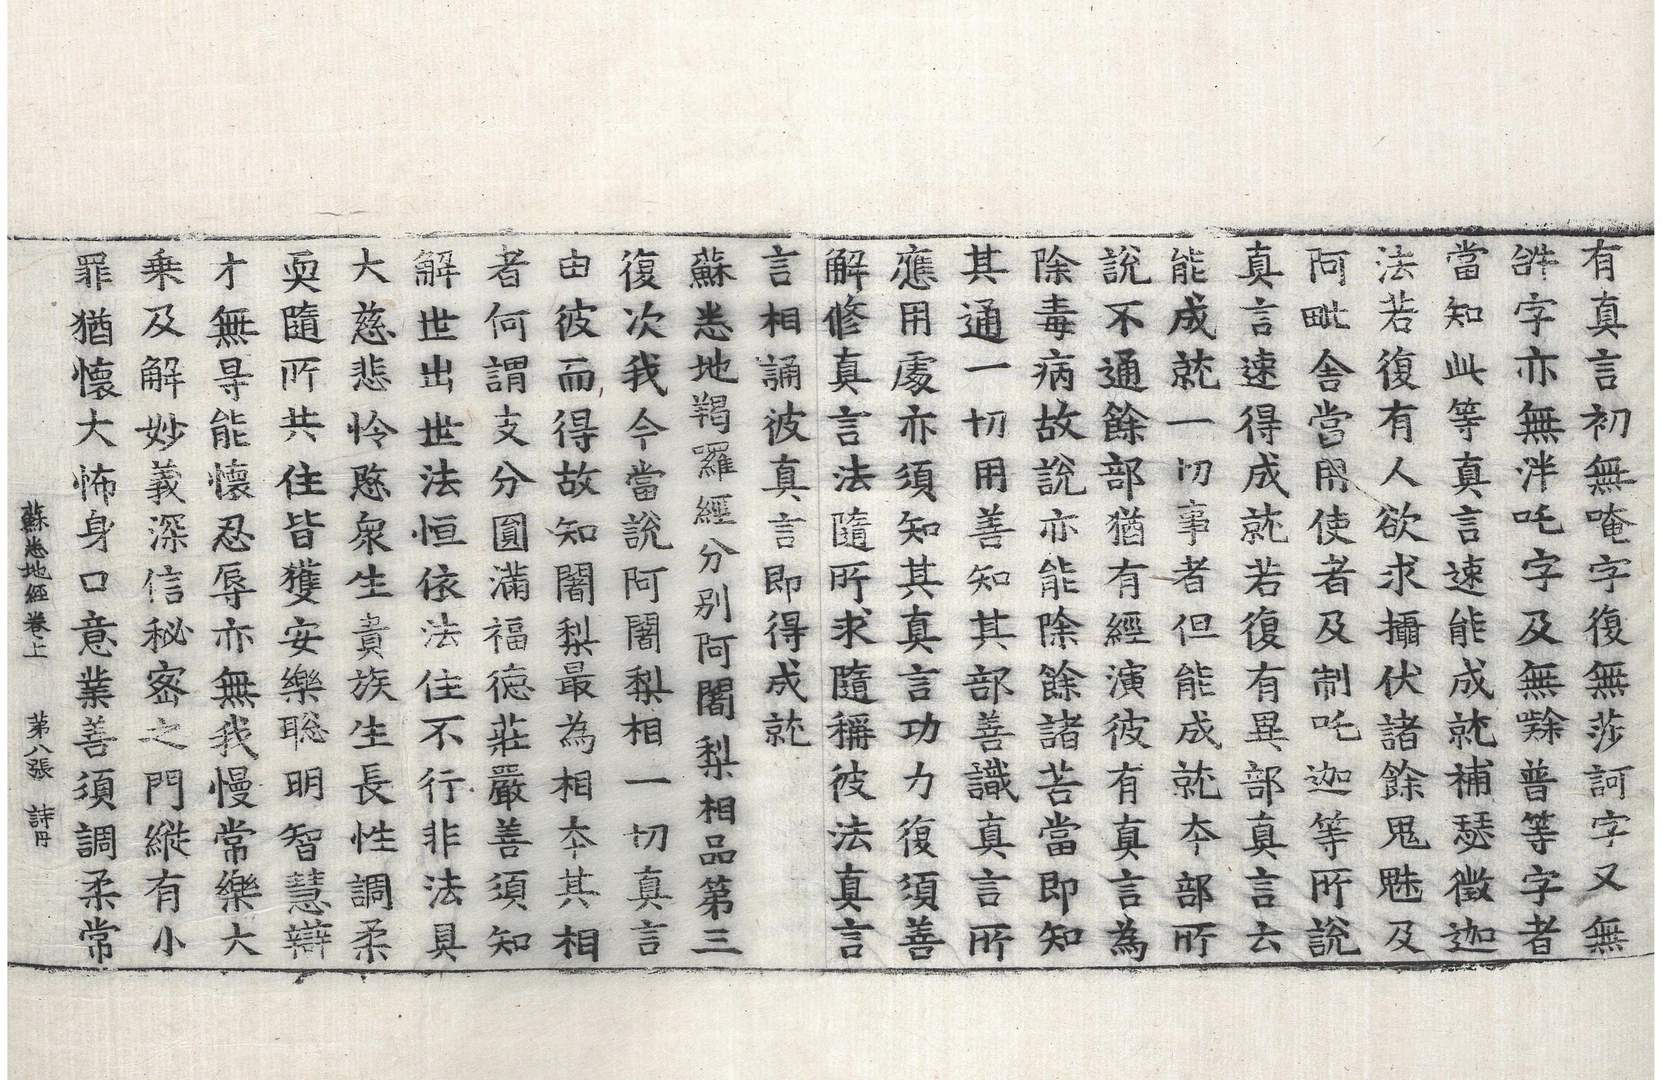 有真言初無唵字復無莎訶字又無
𤙖字亦無泮吒字及無㘑普等字者
當知此等真言速能成就補瑟徵迦
法若復有人欲求攝伏諸餘鬼魅及
阿毗舍當用使者及制吒迦等所說
真言速得成就若復有異部真言云
能成就一切事者但能成就夲部所
說不通餘部猶有經演彼有真言為
除毒病故說亦能除餘諸苦當即知
其通一切用善知其部善識真言所
應用處亦須知其真言功力復須善
解修真言法隨所求隨稱彼法真言
言相誦彼真言即得成就
蘇悉地羯囉經分別阿闍梨相品第三
復次我今當說阿闍梨相一切真言
由彼而得故知闍梨最為相夲其相
者何謂支分圓滿福德莊嚴善須知
解世出世法恒依法住不行非法具
大慈悲怜愍衆生貴族生長性調柔
耎隨所共住皆獲安樂聡明智慧辯
才無㝵能懷忍辱亦無我慢常樂大
乗及解妙義深信秘密之門縱有小
罪猶懷大怖身口意業善須調柔常
蘇悉地經卷上 第八張 詩冊